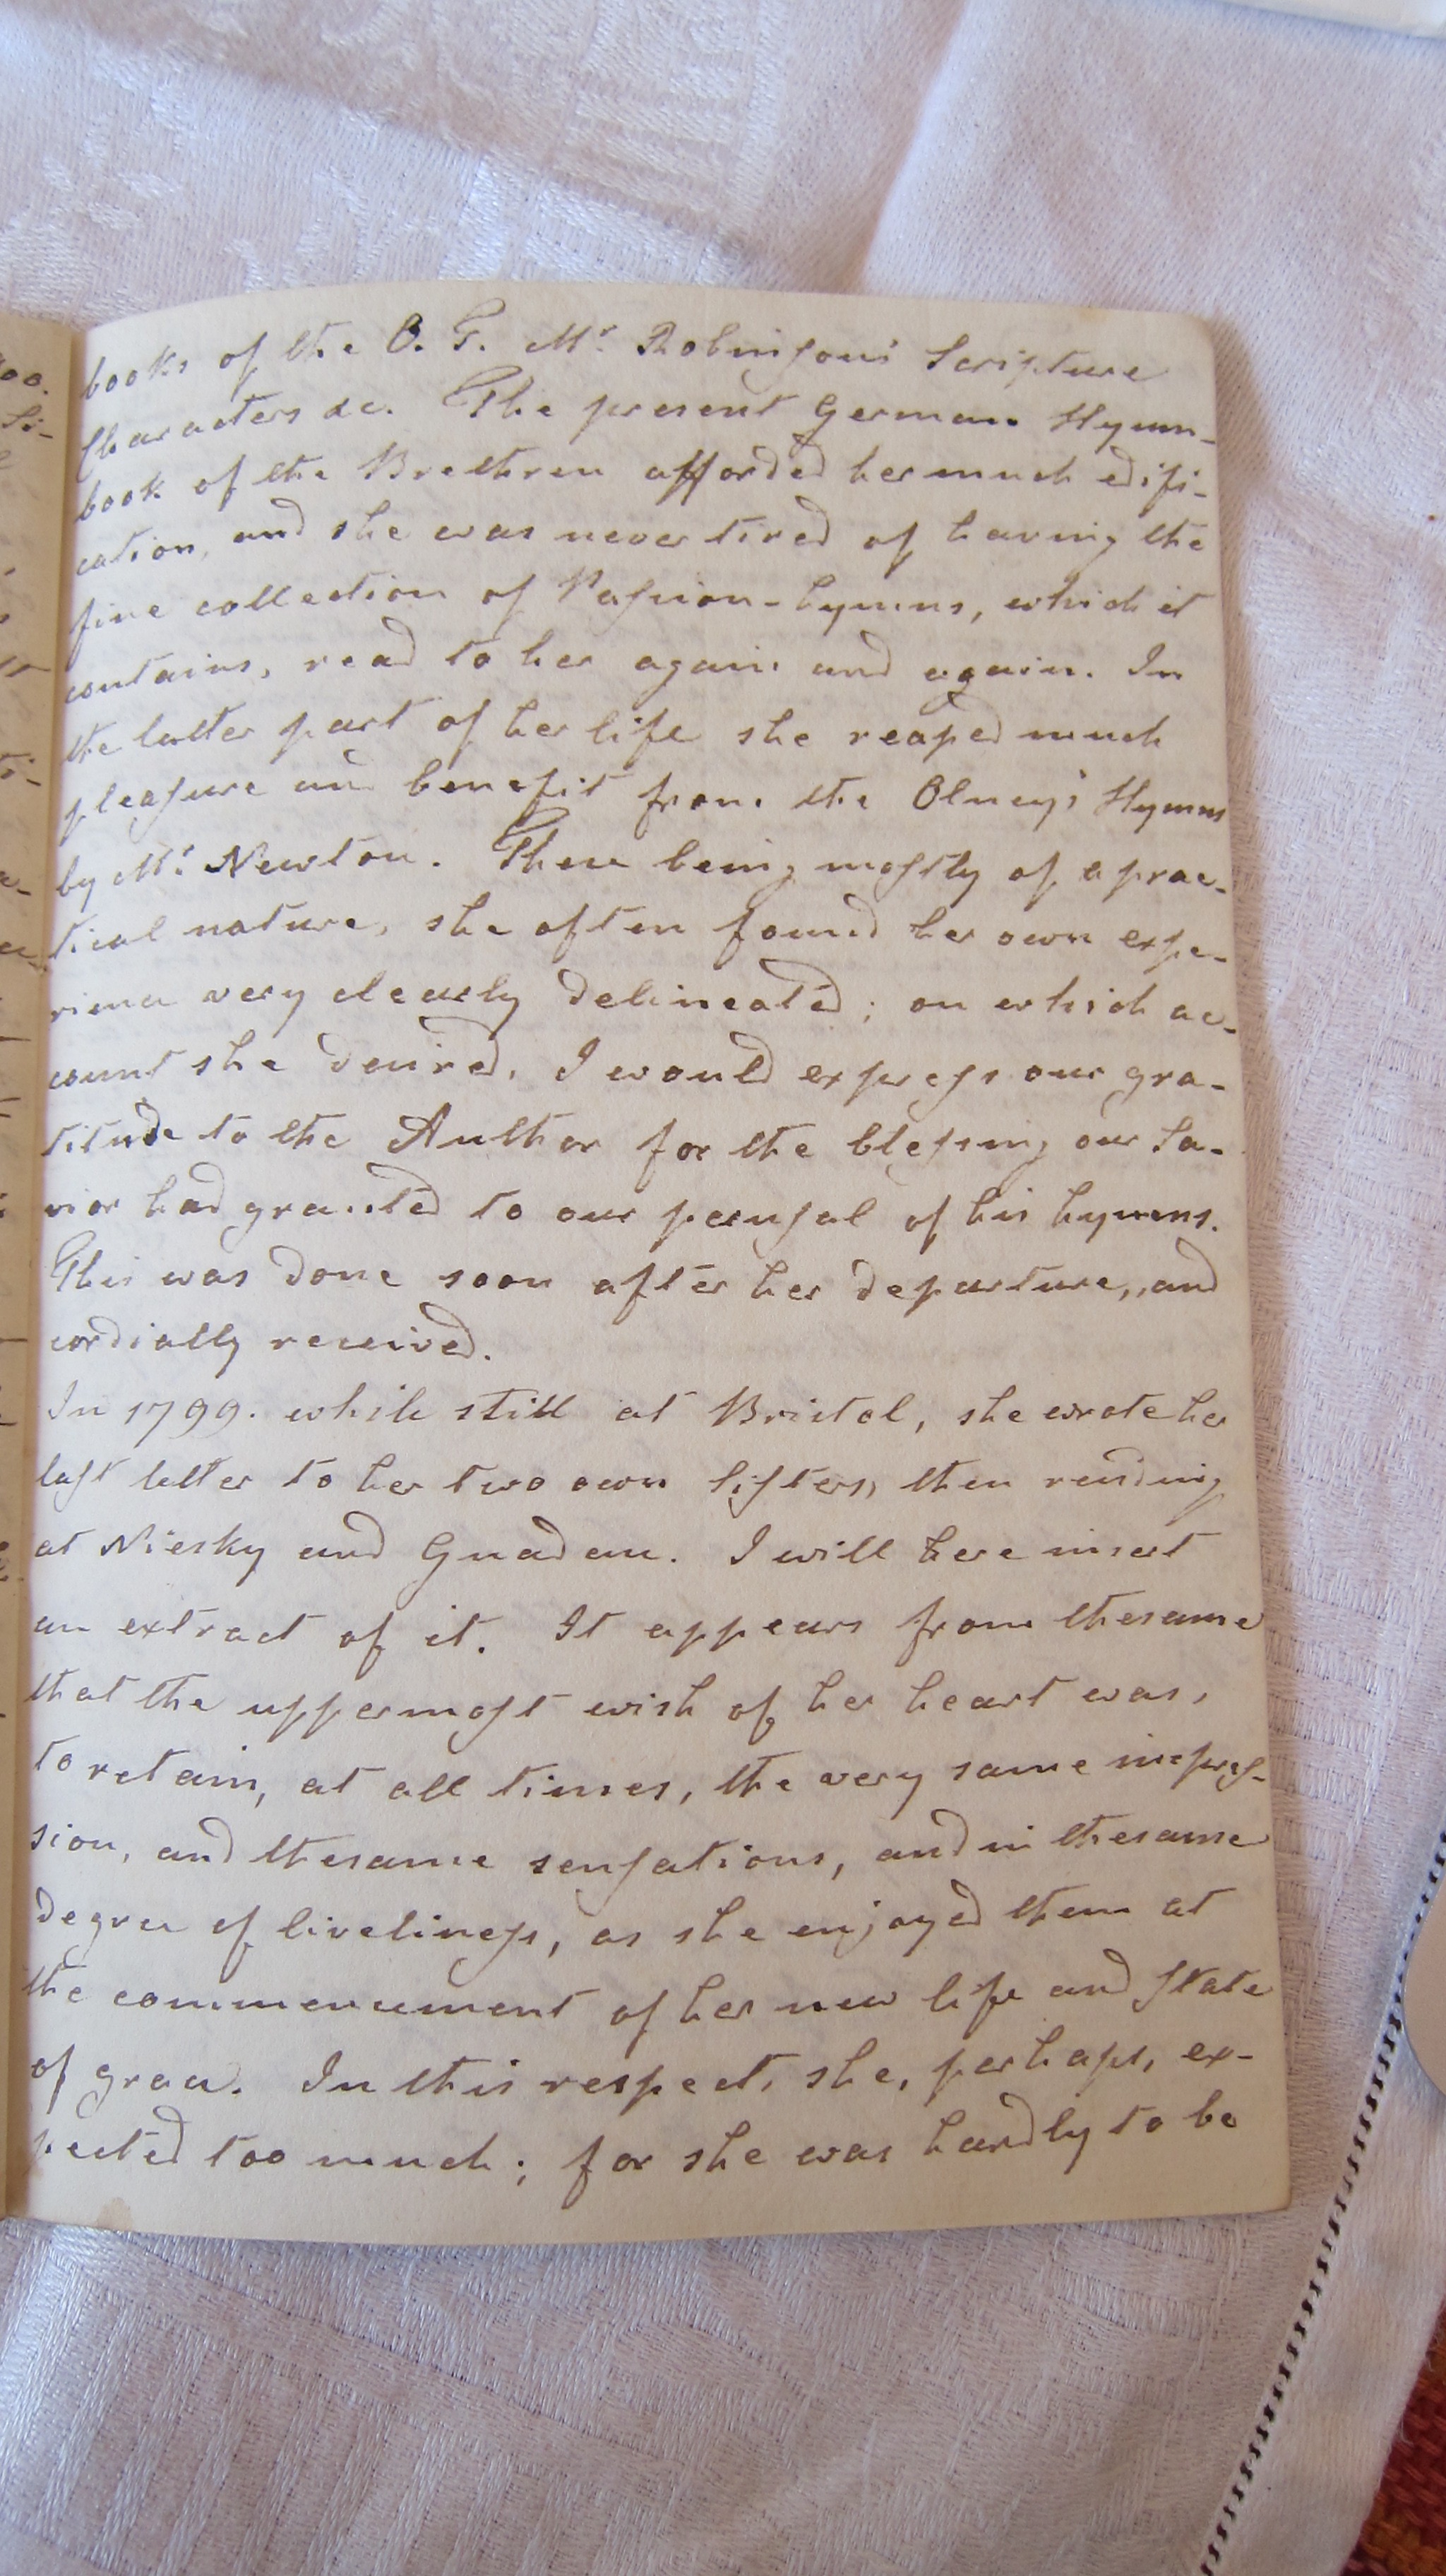 books of the O. T. Mr. Robinson's Scripture
Characters &c. The present German Hymn-
book of the Brethren afforded her much edifi-
cation, and she was never tired of having the
fine collection of Passion-hymns, which it
contains, read to her again and again. In
the latter part of her life she reaped much
pleasure and benefit from the Olney's Hymns
by Mr. Newton. These being mostly of a prac-
tical nature, she often found her own expe-
rience very clearly delineated; on which ac-
count she desired, I would express our gra-
titude to the Author for the blessing our Sa-
vior had granted to our perusal of his hymns.
This was done soon after her departure, and
cordially received.
In 1799. while still at Bristol, she wrote her
last letter to her two own Sisters, then residing
at Niesky and Gnadau. I will here insert
an extract of it. It appears from thesame
that the uppermost wish of her heart was,
to retain, at all times, the very same impres-
sion, and thesame sensations, and in thesame
degree of liveliness, as she enjoyed them at
the commencement of her new life and state
of grace. In this respect, she, perhaps, ex-
pected too much; for she was hardly to be